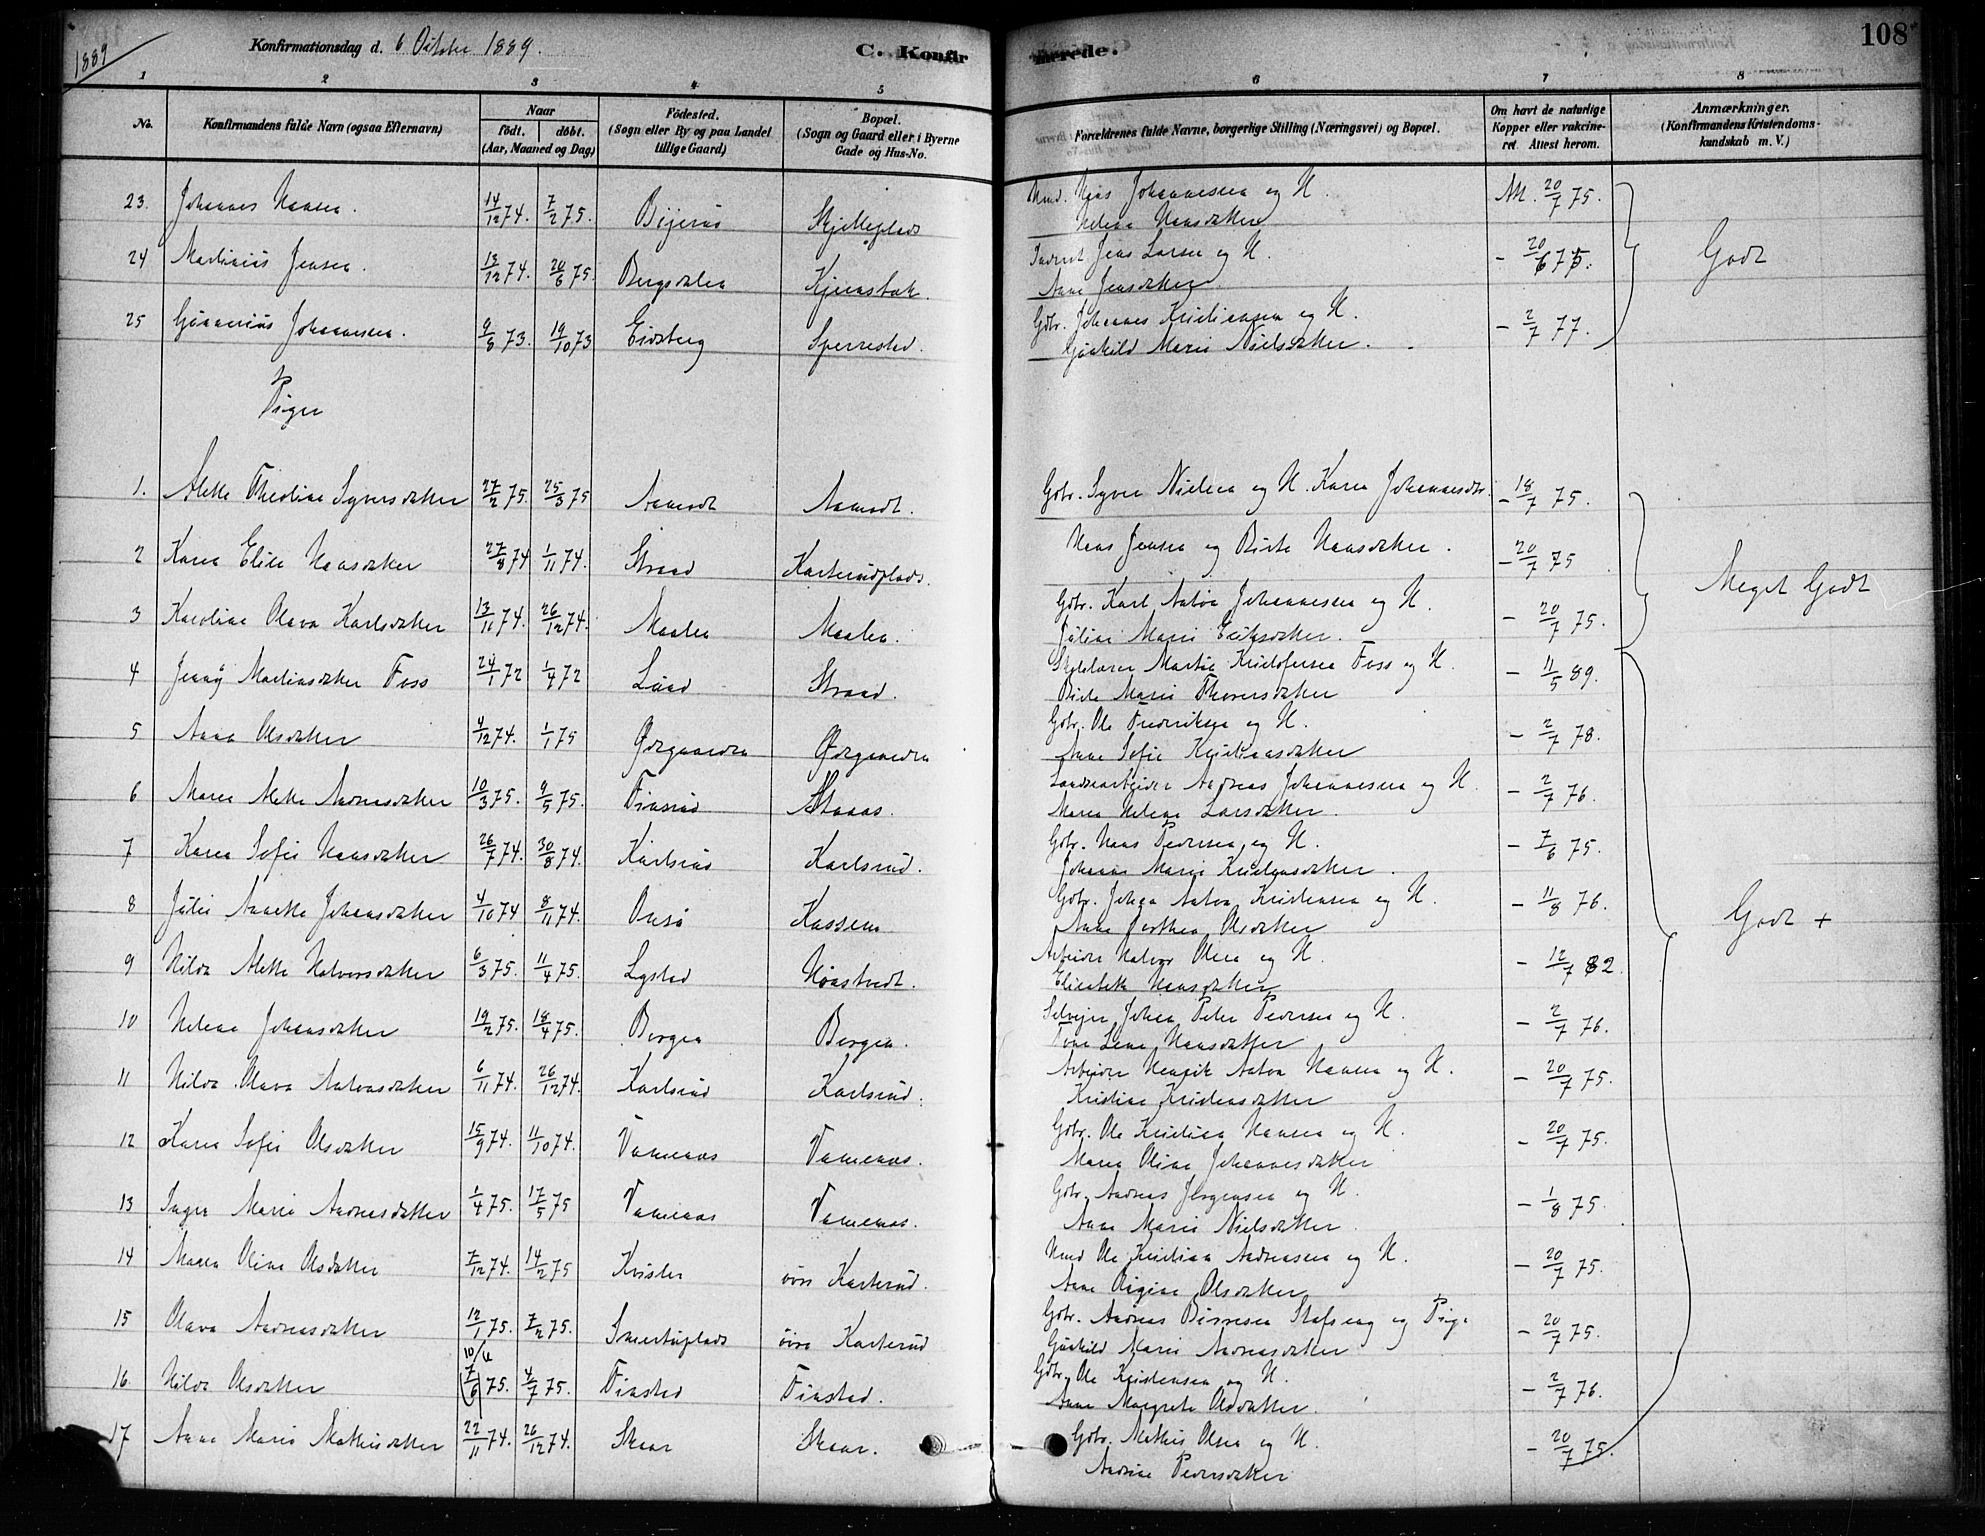 1889
Konfirmationsdag d. 6 October 1889.
C. Konfirmerede.
108
1 2 3 4 5 6 7 8
No.
Konfirmandens fulde Navn (ogsaa Efternavn)
Naar
födt. döbt.
(Aar, Maaned og Dag)
Födested.
(Sogn eller By og paa Landet
tillige Gaard)
Bopæl.
(Sogn og Gaard eller i Byerne
Gade og Hus-No.
Forældrenes fulde Navne, borgerlige Stilling (Næringsvei) og Bopæl.
Om havt de naturlige
Kopper eller vakcine-
ret. Attest herom.
Anmærkninger.
(Konfirmandens Kristendoms-
kundskab m. V.)
23. Johannes Hansen. 14/12 74. 7/2 75. Skjelleplads Hans Johannesen og H. 20/7 75.
Helene Hansdatter
24 Martinius Jensen. 13/12 74. 20/6 75. Bergsdalen Kjensbak. Jens Larsen og H. - 20/6 75.
Anne Jensdatter
Godt
25 Gunnerius Johannesen. 9/8 73. 19/10 73 Eidsberg Sperrestad. Gbr. Johannes Kristiansen og H. - 2/7 77.
Gunhild Marie Nielsdatter.
Piger
1. Alette Theoline Syversdatter 27/2 75. 25/3 75 Aamodt Aamodt. Gbr. Syver Nielsen og H. Karen Johannesdtr. - 18/7 75.
2 Karen Elise Hansdatter 27/8 74 1/11 74. Strand Karterudplads. Hans Jensen og Berte Hansdatter. - 20/7 75
Meget Godt
3 Karoline Olava Karlsdatter 13/11 74. 26/12 74. Maalen Maalen. Gbr. Karl Anton Johannesen og H. - 20/7 75.
Juline Marie Eriksdatter.
4 Jenny Martinsdatter Foss 24/1 72 1/4 72 Lund Strand. Skolelærer Martin Kristofersen Foss og H. - 11/5 89.
Berte Marie Thoresdatter
5 Anna Olsdatter 4/12 74. 1/1 75 Ørgaarden Ørgaarden Gbr. Ole Fredriksen og H. - 2/7 78.
Anne Sofie Kristiansdatter
6 Maren Alette Andreasdatter 10/3 75. 9/5 75. Finsrud Andreas Johannesen og H. - 2/7 76.
Maren Helene Larsdatter.
7 Karen Sofie Hansdatter 26/7 74. 30/8 74. Karlsrud Karlsrud. Gbr. Hans Pedersen og H. - 7/6 75.
Johanne Marie Kristiansdatter.
8 Julie Annette Johansdatter 4/10 74 8/11 74. Onsø Kassem Gbr. Johan Anton Kristensen og H. - 11/8 76.
Anne Dorthea Olsdatter
Godt +
9 Hilda Alette Halvorsdatter 6/3 75. 11/4 75. Lysted Arbeider Halvor Olsen og H. - 12/7 82.
Elisabeth Hansdatter
10 Helene Johansdatter 19/2 75. 18/4 75. Borgen Borgen. Selveier Johan Peter Pedersen og H. - 2/7 76.
Lene Hansdatter
11 Hilda Olava Antonsdatter 6/11 74. 26/12 74. Karlsrud Karlsrud. Arbeider Henrik Anton Hansen og H. - 20/7 75.
Kristine Kristensdatter
12 Karen Sofie Olsdatter 15/9 74. 11/10 74. Vameaas Vameaas. Gbr. Ole Kristian Hansen og H. - 20/7 75.
Maren Oline Johannesdatter
13 Inga Marie Andreasdatter 1/4 75. 17/5 75 Vameaas Vameaas. Gbr. Andreas Jørgensen og H. - 1/8 75.
Anne Marie Nielsdatter.
14 Maren Oline Olsdatter 7/12 74. 14/2 75 Kvisler övre Karterud. Ole Kristian Andreasen og H. - 20/7 75.
Anne Olsdatter
15 Olava Andreasdatter 12/1 75. 7/2 75. övre Karterud Gbr. Andreas og Pige - 20/7 75.
Gunhild Marie Andreasdatter
10/6
16. Hilda Olsdatter (7/6) 75. 4/7 75. Finstad Finstad. Gbr. Ole Kristensen og H. - 2/7 76.
Anne Margrete Olsdatter.
17 Anne Marie Mathisdatter 22/11 74. 26/12 74. Skaar Skaar. Gbr. Mathis Olsen og H. - 20/7 75.
Andrine Pedersdatter